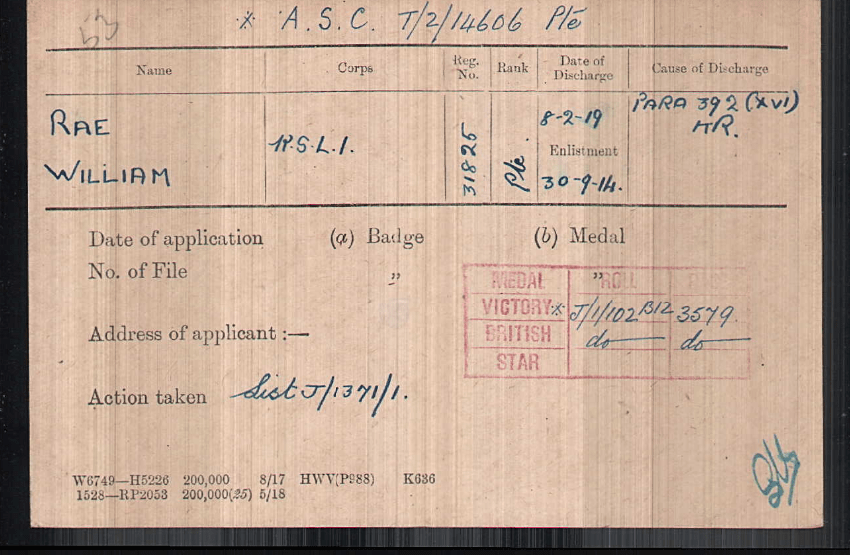 * A.S.C. T/2/14606 Pte
Name Corps Reg. No. Rank Date of Discharge Cause of Discharge
RAE
WILLIAM
31825
Pte.
8-2-19
Enlistment
30-9-14.
PARA 392 (XVI)
KR.
Date of application (a) Badge (b) Medal
No. of File " "
MEDAL ROLL
VICTORY * J/1/102 B12 3579.
BRITISH do do
STAR
Address of applicant :—
Action taken List J/1371/1.
W6749—H5226 200,000 8/17 HWV(P988) K636
1528—RP2053 200,000(25) 5/18